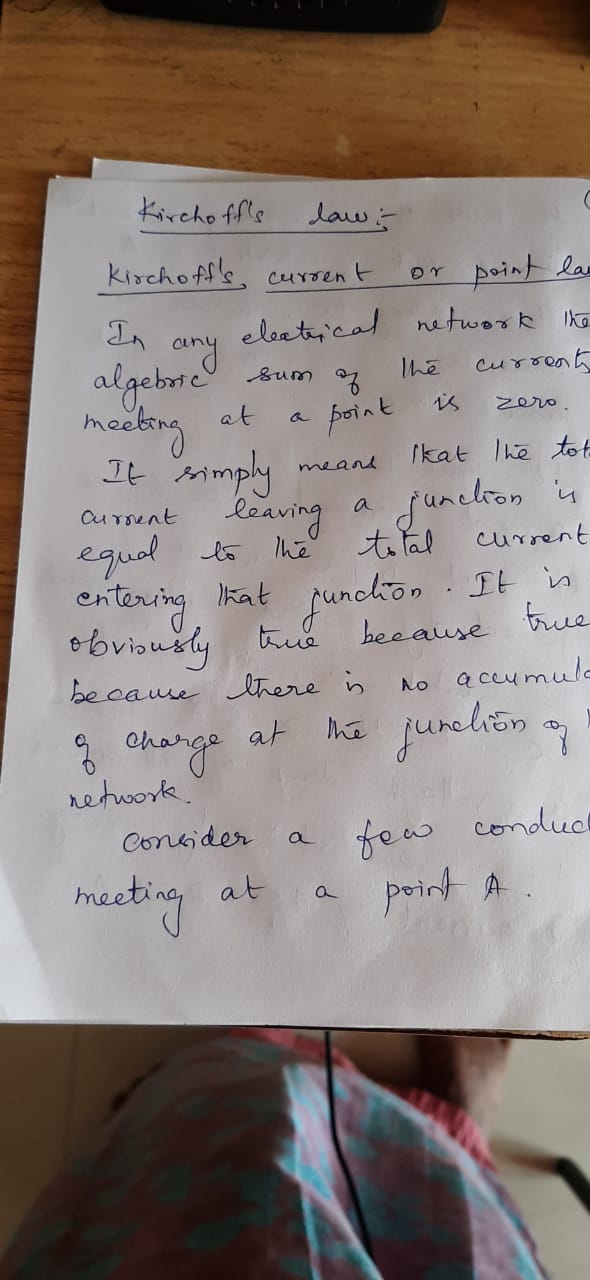 Kirchoff's law :-
Kirchoff's, current or point la
In any electrical network the
algebric sum of the currents
meeting at a point is zero.
It simply means that the tot
current leaving a junction is
equal to the total current
entering that junction. It is
obviously true because true
because there is no accumula
of charge at the junction of
network.
Consider a few conduc
meeting at a point A.